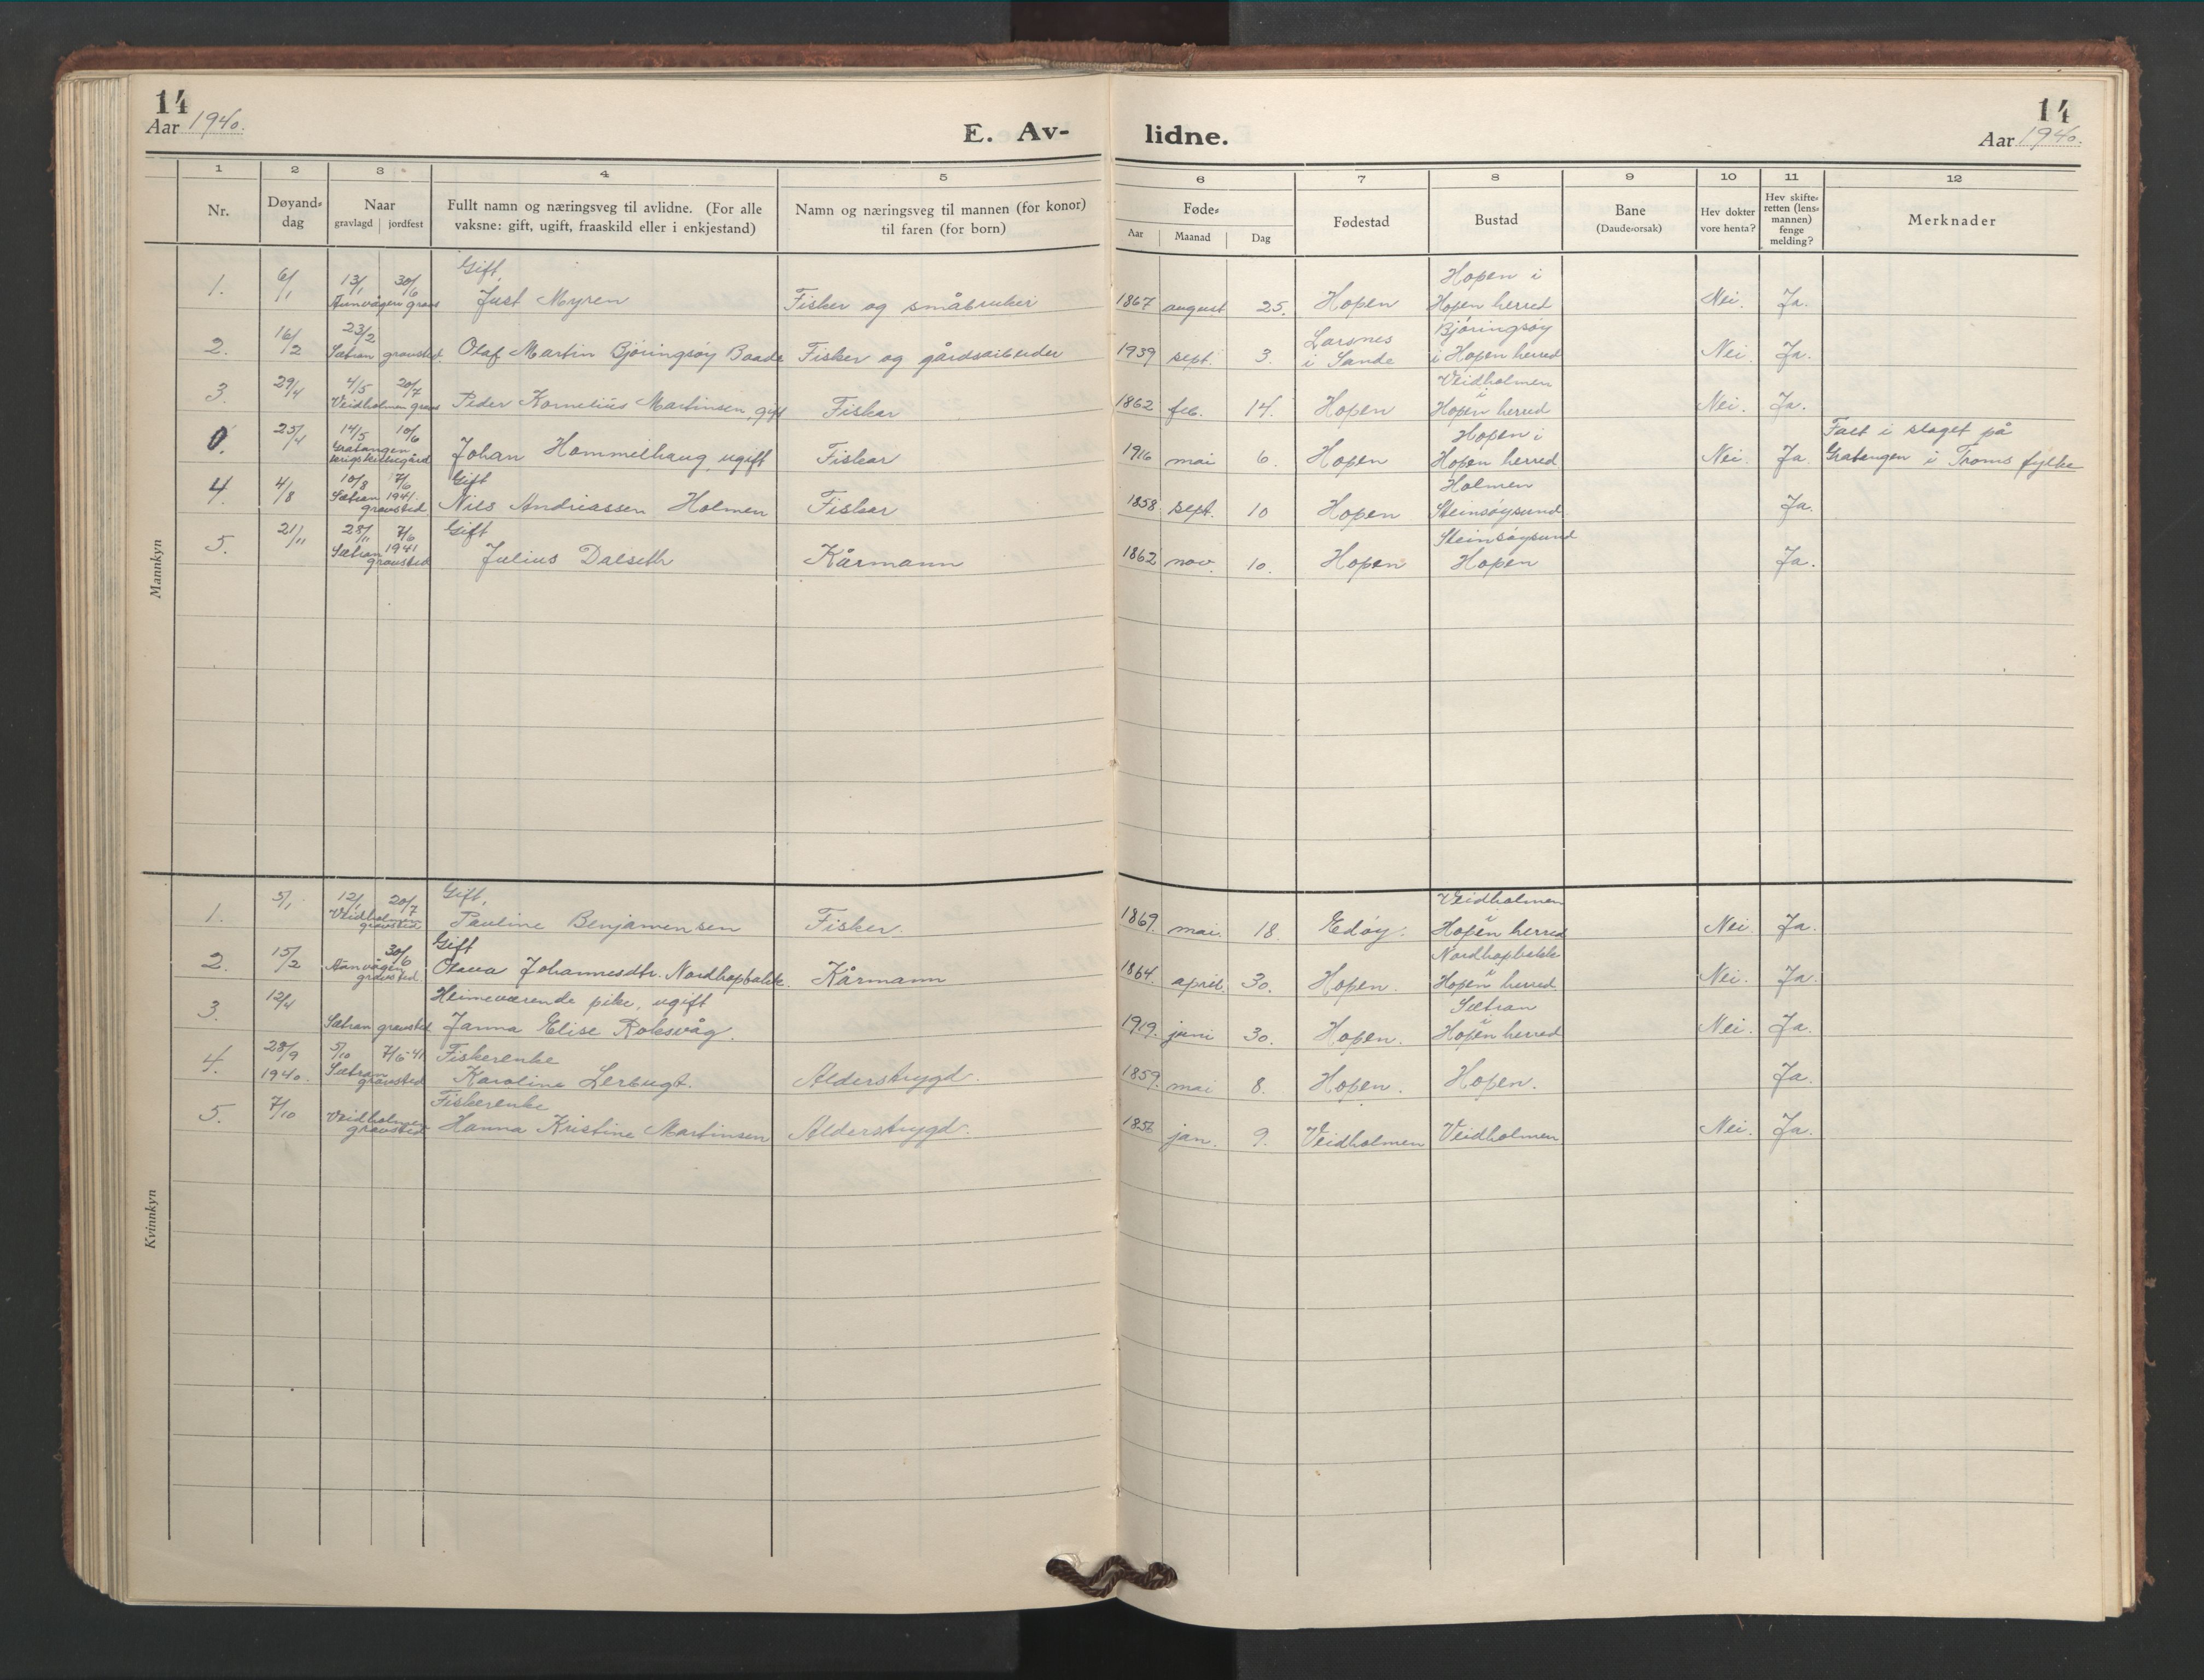 14
Aar 1940.
E. Av-
lidne.
14
Aar 1940.
1 2 3 4 5
Nr.
Døyand-
dag
Naar
gravlagd jordfest
Fullt namn og næringsveg til avlidne. (For alle
vaksne: gift, ugift, fraaskild eller i enkjestand)
Namn og næringsveg til mannen (for konor)
til faren (for born)
6 7 8 9 10 11 12
Føde-
Aar Maanad Dag
Fødestad
Bustad
Bane
(Daude-orsak)
Hev dokter
vore henta?
Hev skifte-
retten (lens-
mannen)
fenge
melding?
Merknader
Mannkyn
Gift, Hopen i
1. 6/1 13/1 30/6 Just Myren Fisker og småbruker 1867 august 25. Hopen Hopen herred Nei. Ja.
23/2 Larsnes Bjøringsøy
2. 16/2 Sætran gravsted Olaf Martin Bjøringsøy Baade Fisker og gårdsarbeider 1939 sept. 3. i Sande i Hopen herred Nei. Ja.
4/5 20/7 Veidholmen
3. 29/4 Veidholmen Peder Kornelius Martinsen gift Fisker 1862 feb. 14. Hopen i Hopen herred Nei. Ja.
14/5 10/6 Hopen i Falt i slaget på
0. 25/4 Gratangen Johan Hommelhaug, ugift Fisker 1916 mai 6. Hopen Hopen herred Nei. Ja. Gratangen i Troms fylke
10/8 7/6 Gift Holmen
4. 4/8 Sætran 1941. gravsted Nils Andriassen Holmen Fisker 1858 sept. 10 Hopen Steinsøysund Ja.
28/11 7/6 Gift Steinsøysund
5. 21/11 Sætran 1941 gravsted Julius Dalseth Kårmann 1862 nov. 10. Hopen Hopen Ja.
Kvinnkyn
12/1 20/7 Gift, Veidholmen
1. 5/1 Veidholmen gravsted Pauline Benjamensen Fisker. 1869. mai. 18. Edøy. i Hopen herred Nei. Ja.
30/6 Gift Nordhopbakk
2. 15/2 gravsted Olava Johannesdtr. Nordhopbakk. Kårmann 1864. april. 30. Hopen. i Hopen herred. Nei. Ja.
Heimeværende pike, ugift Sætran
3. 12/4 Sætran gravsted Janna Elise Roksvåg. 1919. juni 30. Hopen. i Hopen herred Nei. Ja.
5/10 7/6-41 Fiskerenke
4. 28/9 1940. Sætran gravsted Karoline Lerbugt. Alderstrygd. 1859. mai 8. Hopen. Hopen. Ja.
Fiskerenke
5. 7/10 Veidholmen gravsted Hanna Kristine Martinsen Alderstrygd. jan. 9. Veidholmen Veidholmen Nei. Ja.